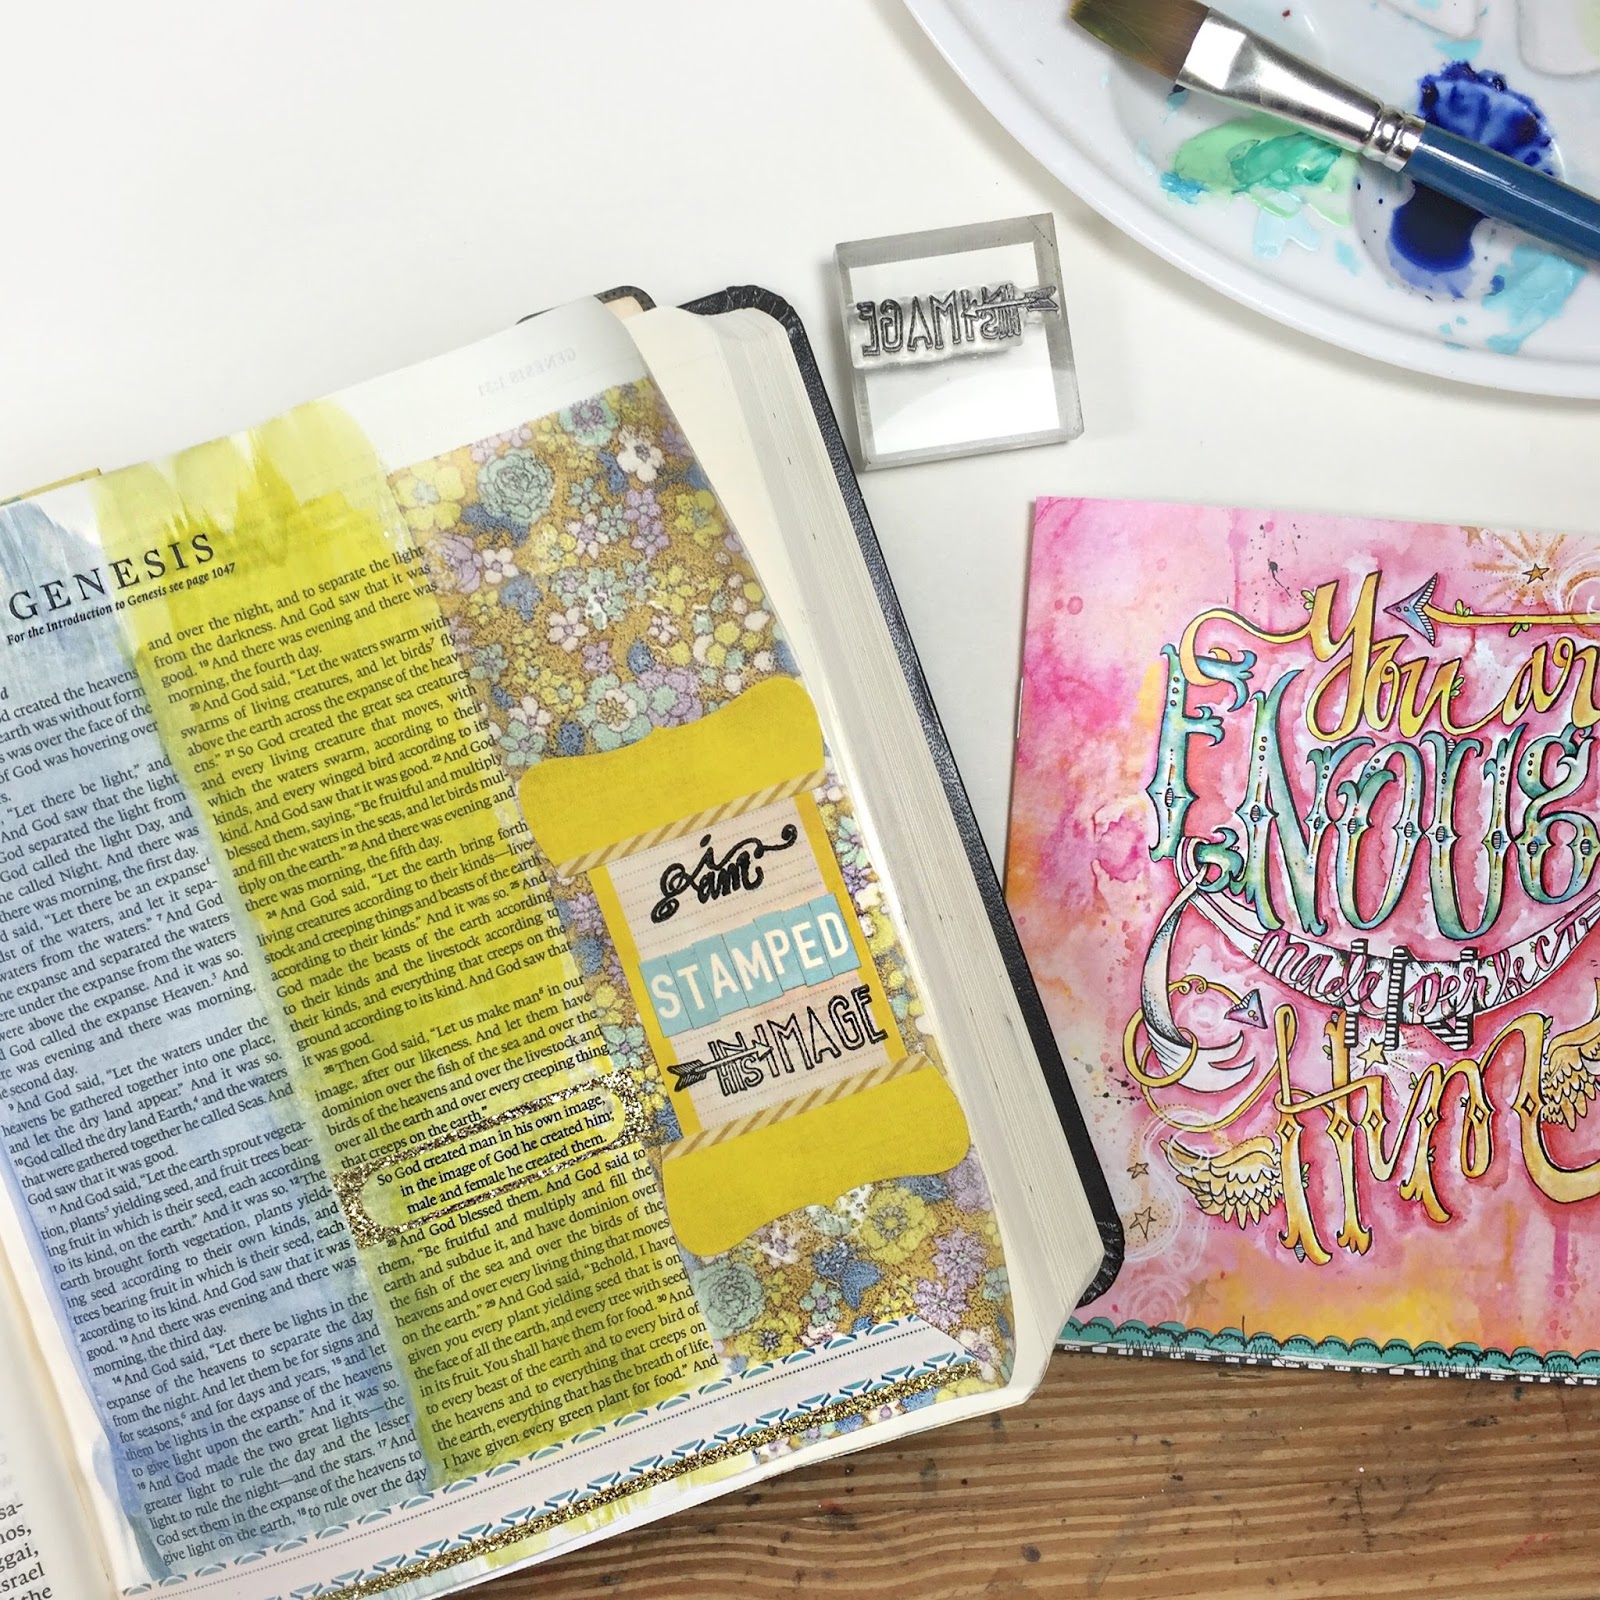 GENESIS 1:31
GENESIS
For the Introduction to Genesis see page 1047
created the heavens
earth was without form
was over the face of the
of God was hovering over
"Let there be light," and
And God saw that the light
God separated the light from
God called the light Day, and
he called Night. And there was
there was morning, the first day.
said, "Let there be an expanse¹
midst of the waters, and let it sepa-
waters from the waters." ⁷ And God
the expanse and separated the waters
were under the expanse from the waters
were above the expanse. And it was so.
God called the expanse Heaven.³ And
there was evening and there was morning,
second day.
⁹ And God said, "Let the waters under the
heavens be gathered together into one place,
and let the dry land appear." And it was so.
¹⁰ God called the dry land Earth,⁴ and the waters
that were gathered together he called Seas. And
God saw that it was good.
¹¹ And God said, "Let the earth sprout vegeta-
tion, plants⁵ yielding seed, and fruit trees bear-
ing fruit in which is their seed, each according
to its kind, on the earth." And it was so. ¹² The
earth brought forth vegetation, plants yield-
ing seed according to their own kinds, and
trees bearing fruit in which is their seed, each
according to its kind. And God saw that it was
good. ¹³ And there was evening and there was
morning, the third day.
¹⁴ And God said, "Let there be lights in the
expanse of the heavens to separate the day
from the night. And let them be for signs and
for seasons,⁶ and for days and years, ¹⁵ and let
them be lights in the expanse of the heavens
to give light upon the earth." And it was so.
¹⁶ And God made the two great lights—the
greater light to rule the day and the lesser
light to rule the night—and the stars. ¹⁷ And
God set them in the expanse of the heavens to
give light on the earth, ¹⁸ to rule over the day
and over the night, and to separate the light
from the darkness. And God saw that it was
good. ¹⁹ And there was evening and there was
morning, the fourth day.
²⁰ And God said, "Let the waters swarm with
swarms of living creatures, and let birds⁷ fly
above the earth across the expanse of the heav-
ens." ²¹ So God created the great sea creatures
and every living creature that moves, with
which the waters swarm, according to their
kinds, and every winged bird according to its
kind. And God saw that it was good. ²² And God
blessed them, saying, "Be fruitful and multiply
and fill the waters in the seas, and let birds mul-
tiply on the earth." ²³ And there was evening and
there was morning, the fifth day.
²⁴ And God said, "Let the earth bring forth
living creatures according to their kinds—live-
stock and creeping things and beasts of the earth
according to their kinds." And it was so. ²⁵ And
God made the beasts of the earth according
to their kinds and the livestock according to
their kinds, and everything that creeps on the
ground according to its kind. And God saw that
it was good.
²⁶ Then God said, "Let us make man⁸ in our
image, after our likeness. And let them have
dominion over the fish of the sea and over the
birds of the heavens and over the livestock and
over all the earth and over every creeping thing
that creeps on the earth."
So God created man in his own image,
in the image of God he created him;
male and female he created them.
²⁸ And God blessed them. And God said to
them, "Be fruitful and multiply and fill the
earth and subdue it, and have dominion over
the fish of the sea and over the birds of the
heavens and over every living thing that moves
on the earth." ²⁹ And God said, "Behold, I have
given you every plant yielding seed that is on
the face of all the earth, and every tree with seed
in its fruit. You shall have them for food. ³⁰ And
to every beast of the earth and to every bird of
the heavens and to everything that creeps on
the earth, everything that has the breath of life,
I have given every green plant for food." And
i am
STAMPED
IN HIS IMAGE
IN HIS IMAGE
You are
ENOUGH
made perfect
IN
Him
ggai,
Israel
the